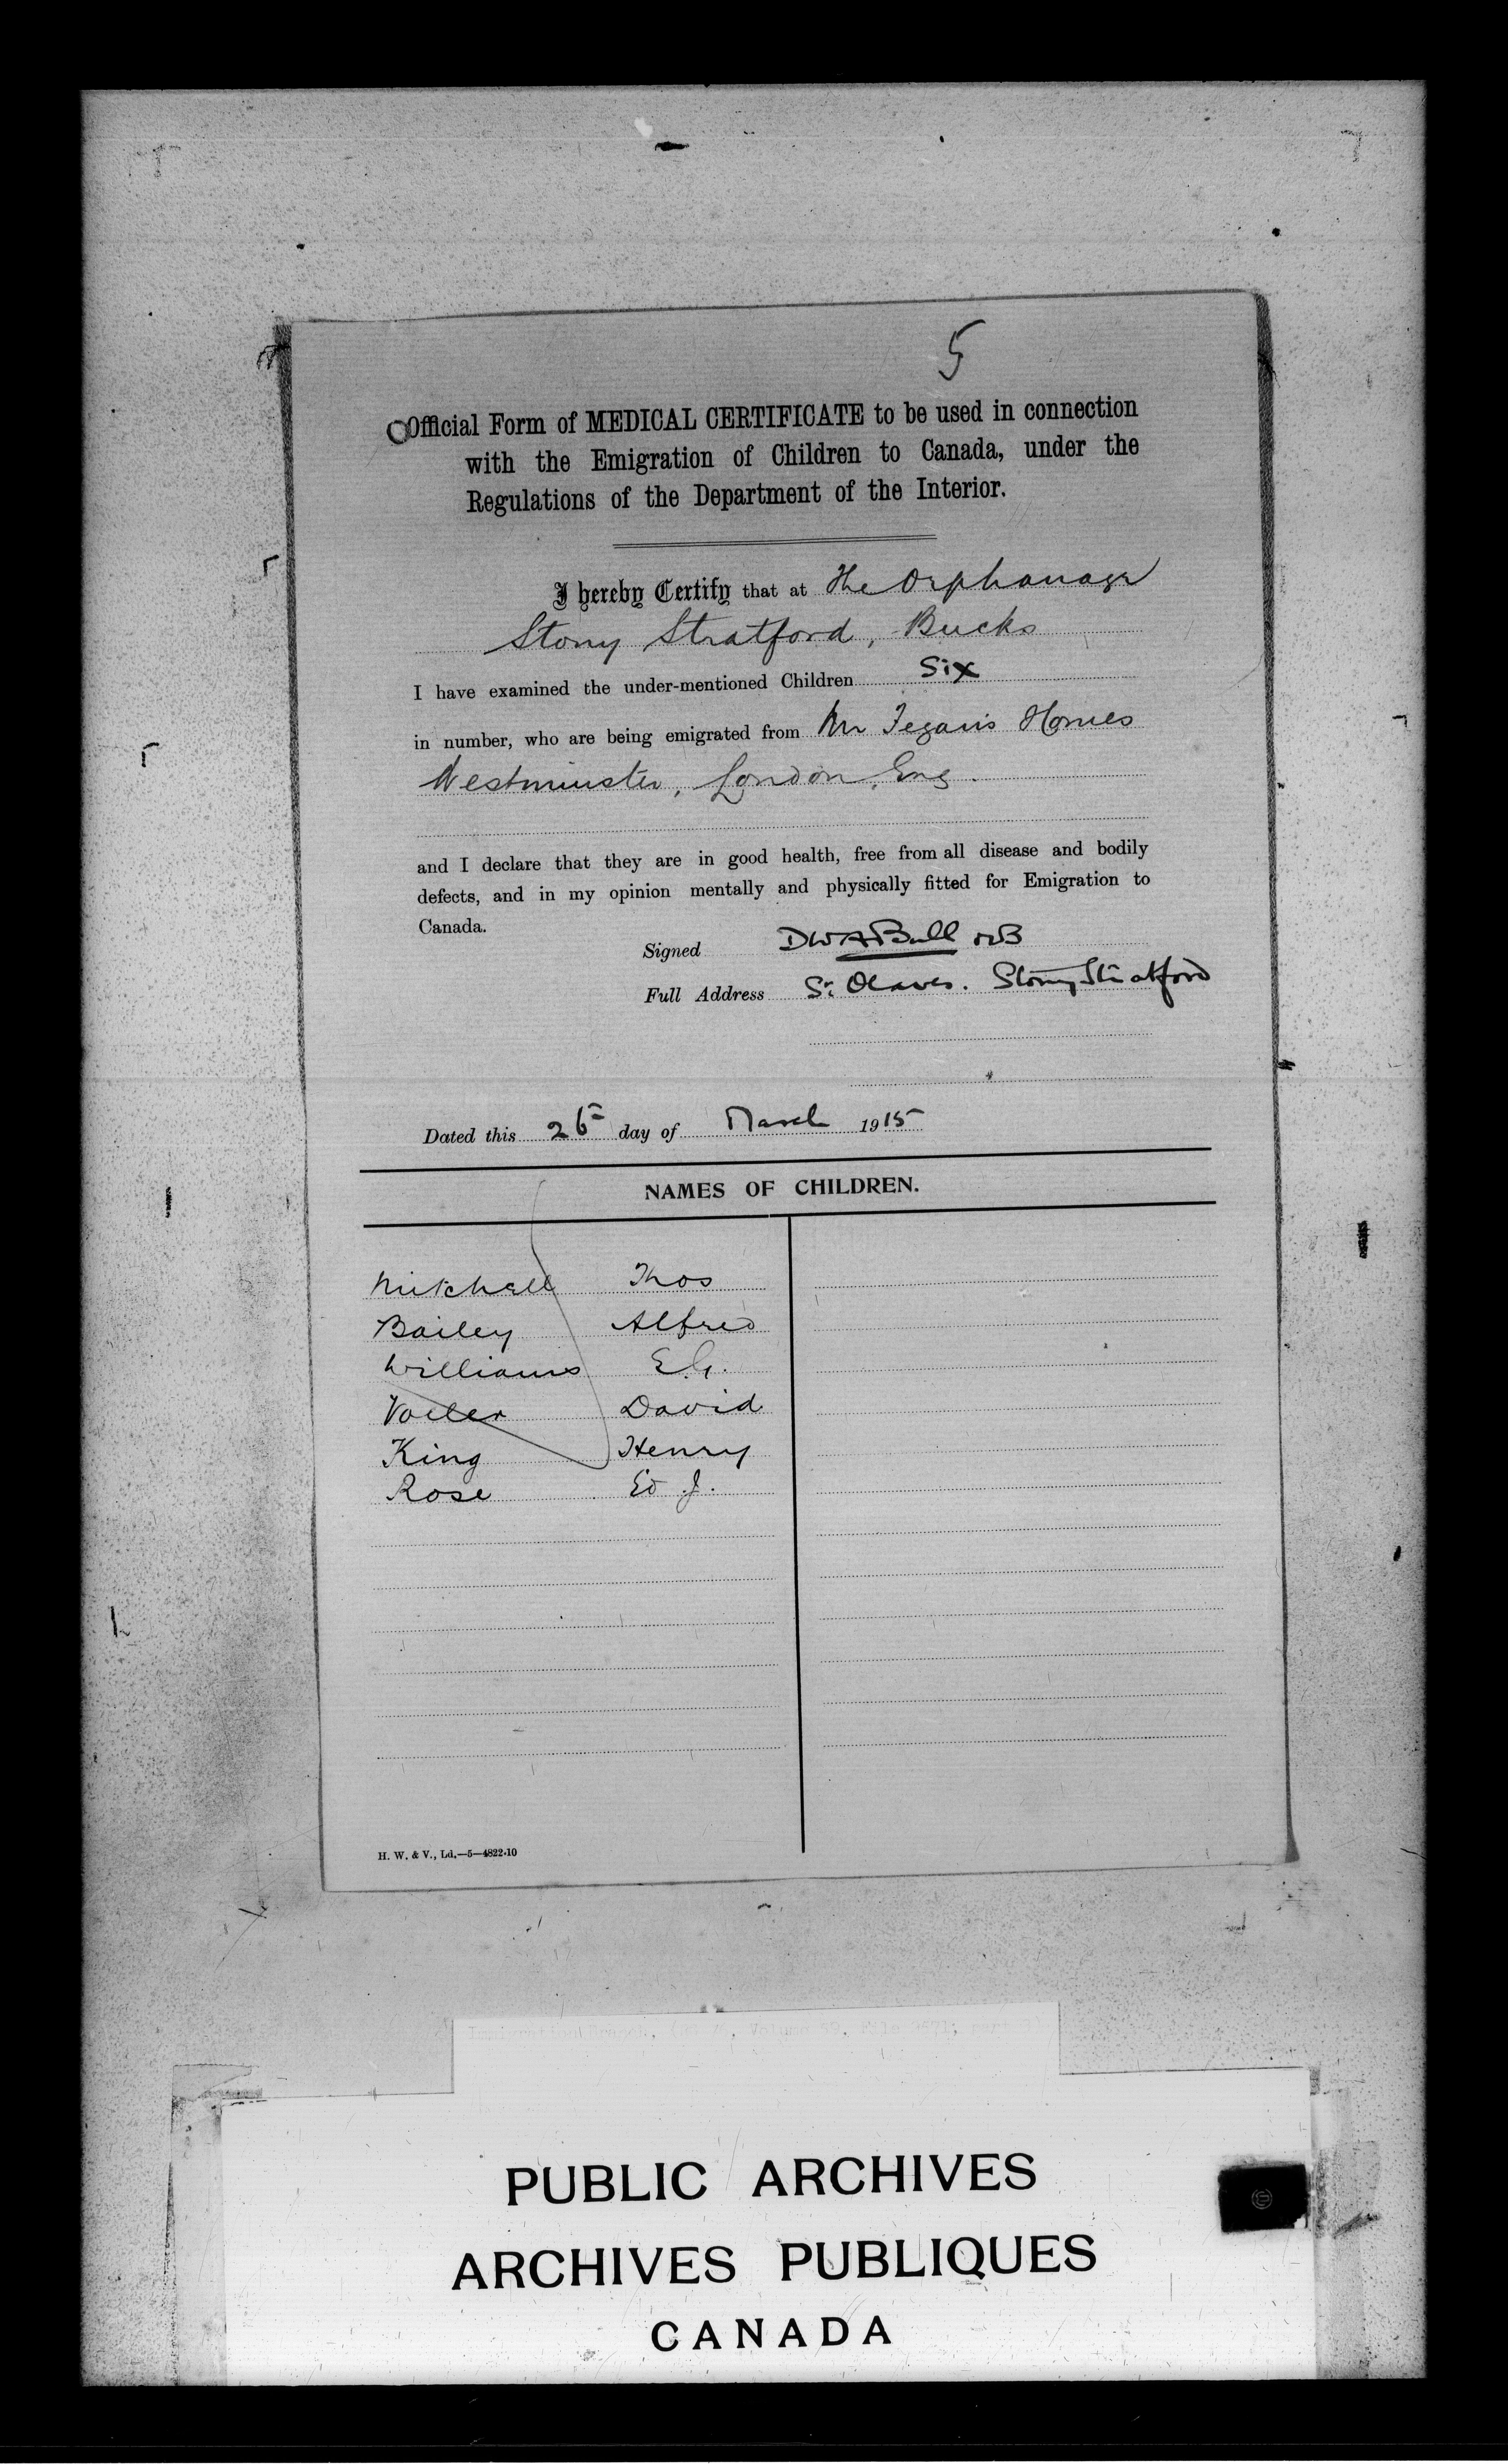 5
Official Form of MEDICAL CERTIFICATE to be used in connection
with the Emigration of Children to Canada, under the
Regulations of the Department of the Interior.
I hereby Certify that at The Orphanage
Stony Stratford, Bucks
I have examined the under-mentioned Children Six
in number, who are being emigrated from Mr Fegan's Homes
Westminster, London, Eng.
and I declare that they are in good health, free from all disease and bodily
defects, and in my opinion mentally and physically fitted for Emigration to
Canada.
Signed DWA Bull MB
Full Address St Olaves. Stony Stratford
Dated this 26 day of March 1915
NAMES OF CHILDREN.
Mitchell Thos
Bailey Alfred
Williams E.G.
Voller David
King Henry
Rose Ed J.
H. W. & V., Ld.—5—4822-10
PUBLIC ARCHIVES
ARCHIVES PUBLIQUES
CANADA